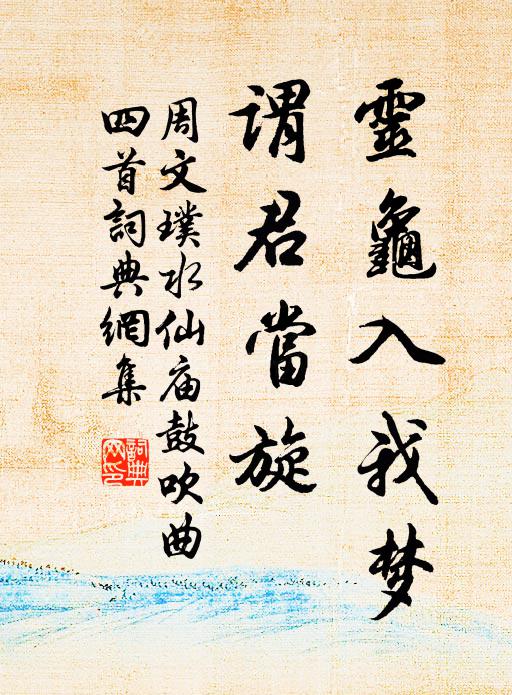 靈龜入我梦
謂君當旋
周文璞水仙庙鼓吹曲
四首詞典網集
詞典
网印